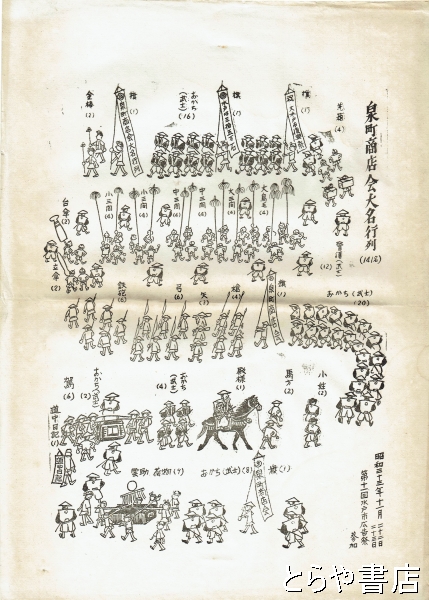 泉町商店会大名行列
(142名)
先箱
(4)
旗
(1)
旗
(1)
おかち
(武士)
(16)
旗
(1)
金棒
(2)
警護(武士)
(12)
鳥毛
(4)
大三間
(4)
中三間
(4)
中三間
(4)
小三間
(4)
小三間
(4)
台傘
(2)
立傘
(2)
おかち(武士)
(20)
旗
(1)
槍
(4)
矢
(2)
弓
(6)
鉄砲
(6)
小姓
(2)
馬方
(2)
殿様
(1)
おかち
(武士)
(4)
おかち(武士)
(2)
駕
(6)
道中日記
(1)
旗(1)
おかち(武士)(8)
荷物(7)
昭和三十三年十一月二十二日
二十三日
第十一回水戸市広告祭
参加
とらや書店